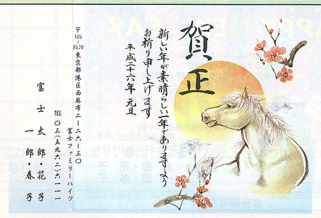 賀正
新しい年が素晴らしい一年でありますよう
お祈り申し上げます
平成二十六年 元旦
〒106-8620
東京都港区西麻布二-二六-三〇
富士ファミリーハイツ
TEL 〇三(五九六二)六一一一
富士 太郎・花子
一郎・春子